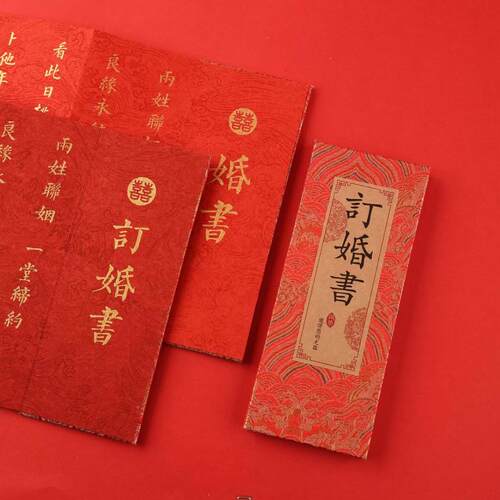 卜他年
看此日桃
良緣永結
兩姓聯姻
囍
婚書
良緣永
兩姓聯姻
一堂締約
囍
訂婚書
訂婚書